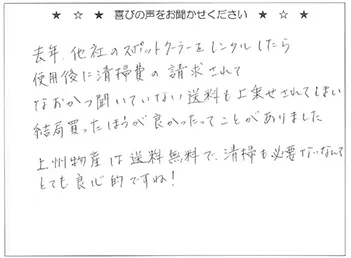 ★ ☆ ★ 喜びの声をお聞かせください ★ ☆ ★
去年、他社のスポットクーラーをレンタルしたら
使用後に清掃費の請求されて
なおかつ聞いていない送料も上乗せされてしまい
結局買ったほうが良かったってことがありました
上州物産は送料無料で、清掃も必要ないなんて
とても良心的ですね!